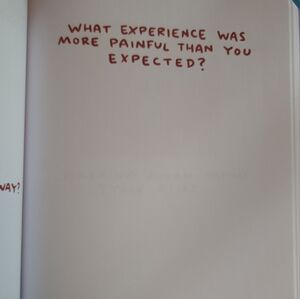 WHAT EXPERIENCE WAS
MORE PAINFUL THAN YOU
EXPECTED?
WAY?